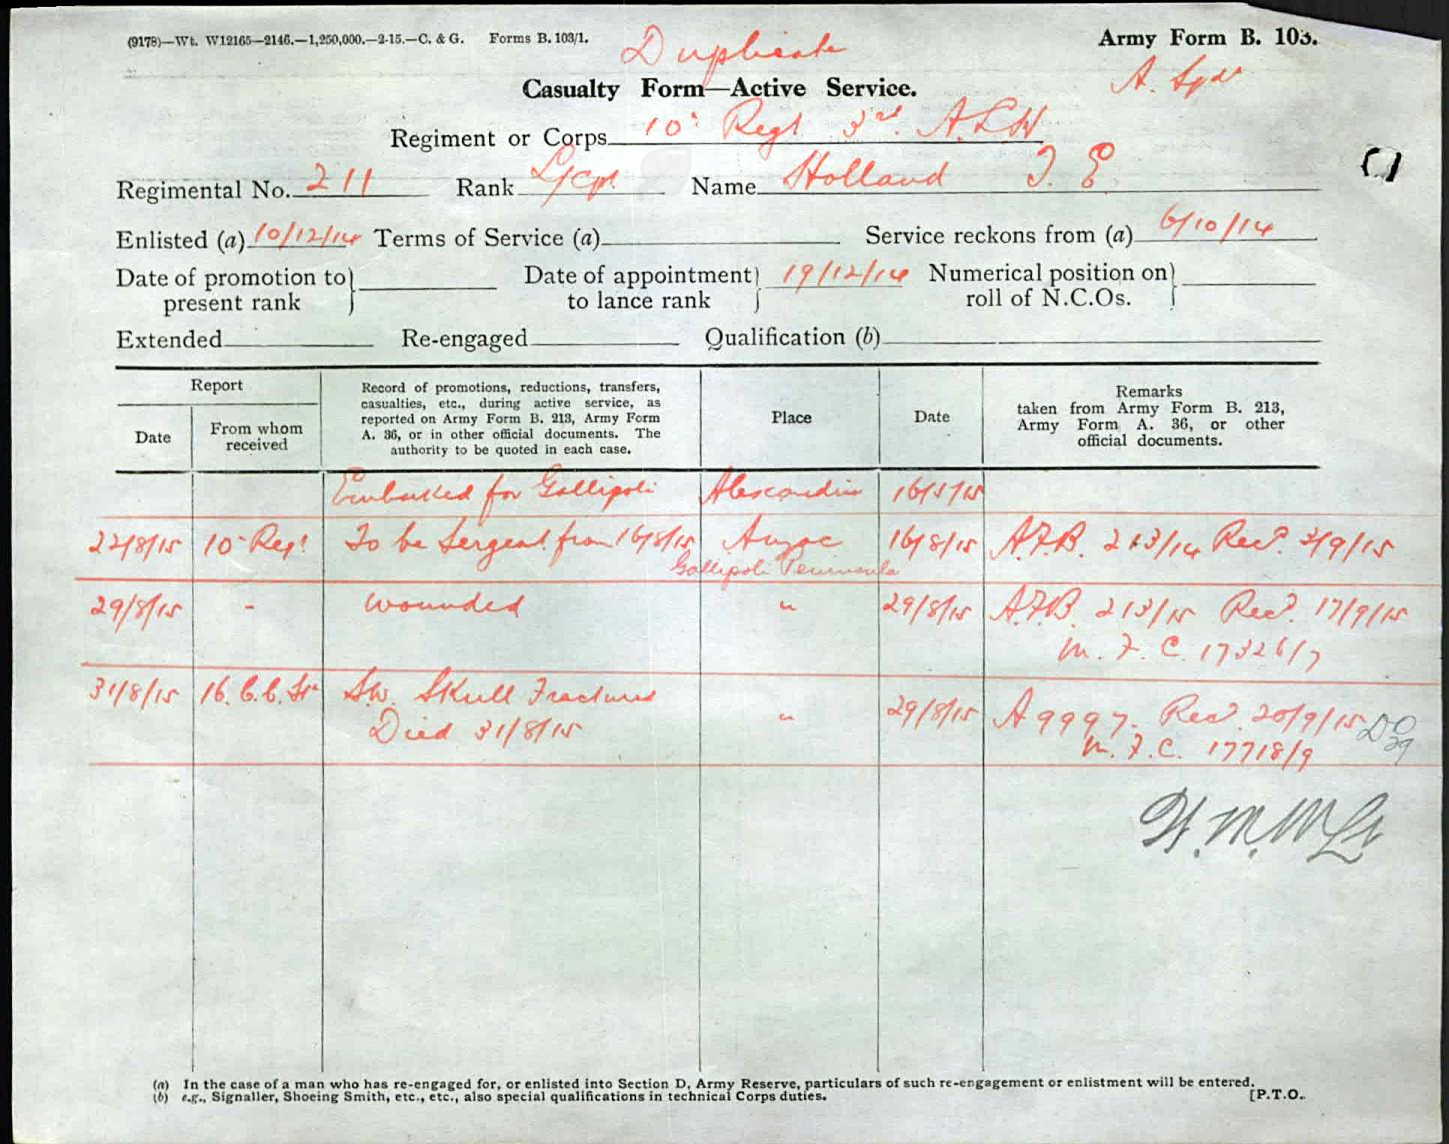 (9178)—Wt. W12165—2146.—1,250,000.—2-15.—C. & G. Forms B. 103/1.
Duplicate
Army Form B. 103.
Casualty Form—Active Service.
A.
Regiment or Corps 10th Regt 3rd A.L.H
Regimental No. 211 Rank L/Cpl Name Holland T. E.
Enlisted (a) 10/12/14 Terms of Service (a) Service reckons from (a) 6/10/14
Date of promotion to present rank } Date of appointment to lance rank } 19/12/14 Numerical position on roll of N.C.Os. }
Extended Re-engaged Qualification (b)
Report
Date
From whom received
Record of promotions, reductions, transfers, casualties, etc., during active service, as reported on Army Form B. 213, Army Form A. 36, or in other official documents. The authority to be quoted in each case.
Place
Date
Remarks
taken from Army Form B. 213, Army Form A. 36, or other official documents.
Embarked for Gallipoli Alexandria 16/5/15
22/8/15 10th Regt To be Sergeant from 16/8/15 Anzac 16/8/15 A.F.B. 213/14 Recd. 3/9/15
Gallipoli Peninsula
29/8/15 - Wounded " 29/8/15 A.F.B. 213/15 Recd. 17/9/15
M. F. C. 17326/7
31/8/15 16. C.C. Stn S.W. Skull Fractured " 29/8/15 A 9997. Recd. 20/9/15
Died 31/8/15 M. F. C. 17718/9
DO 29
(a) In the case of a man who has re-engaged for, or enlisted into Section D, Army Reserve, particulars of such re-engagement or enlistment will be entered.
(b) e.g., Signaller, Shoeing Smith, etc., etc., also special qualifications in technical Corps duties. [P.T.O.